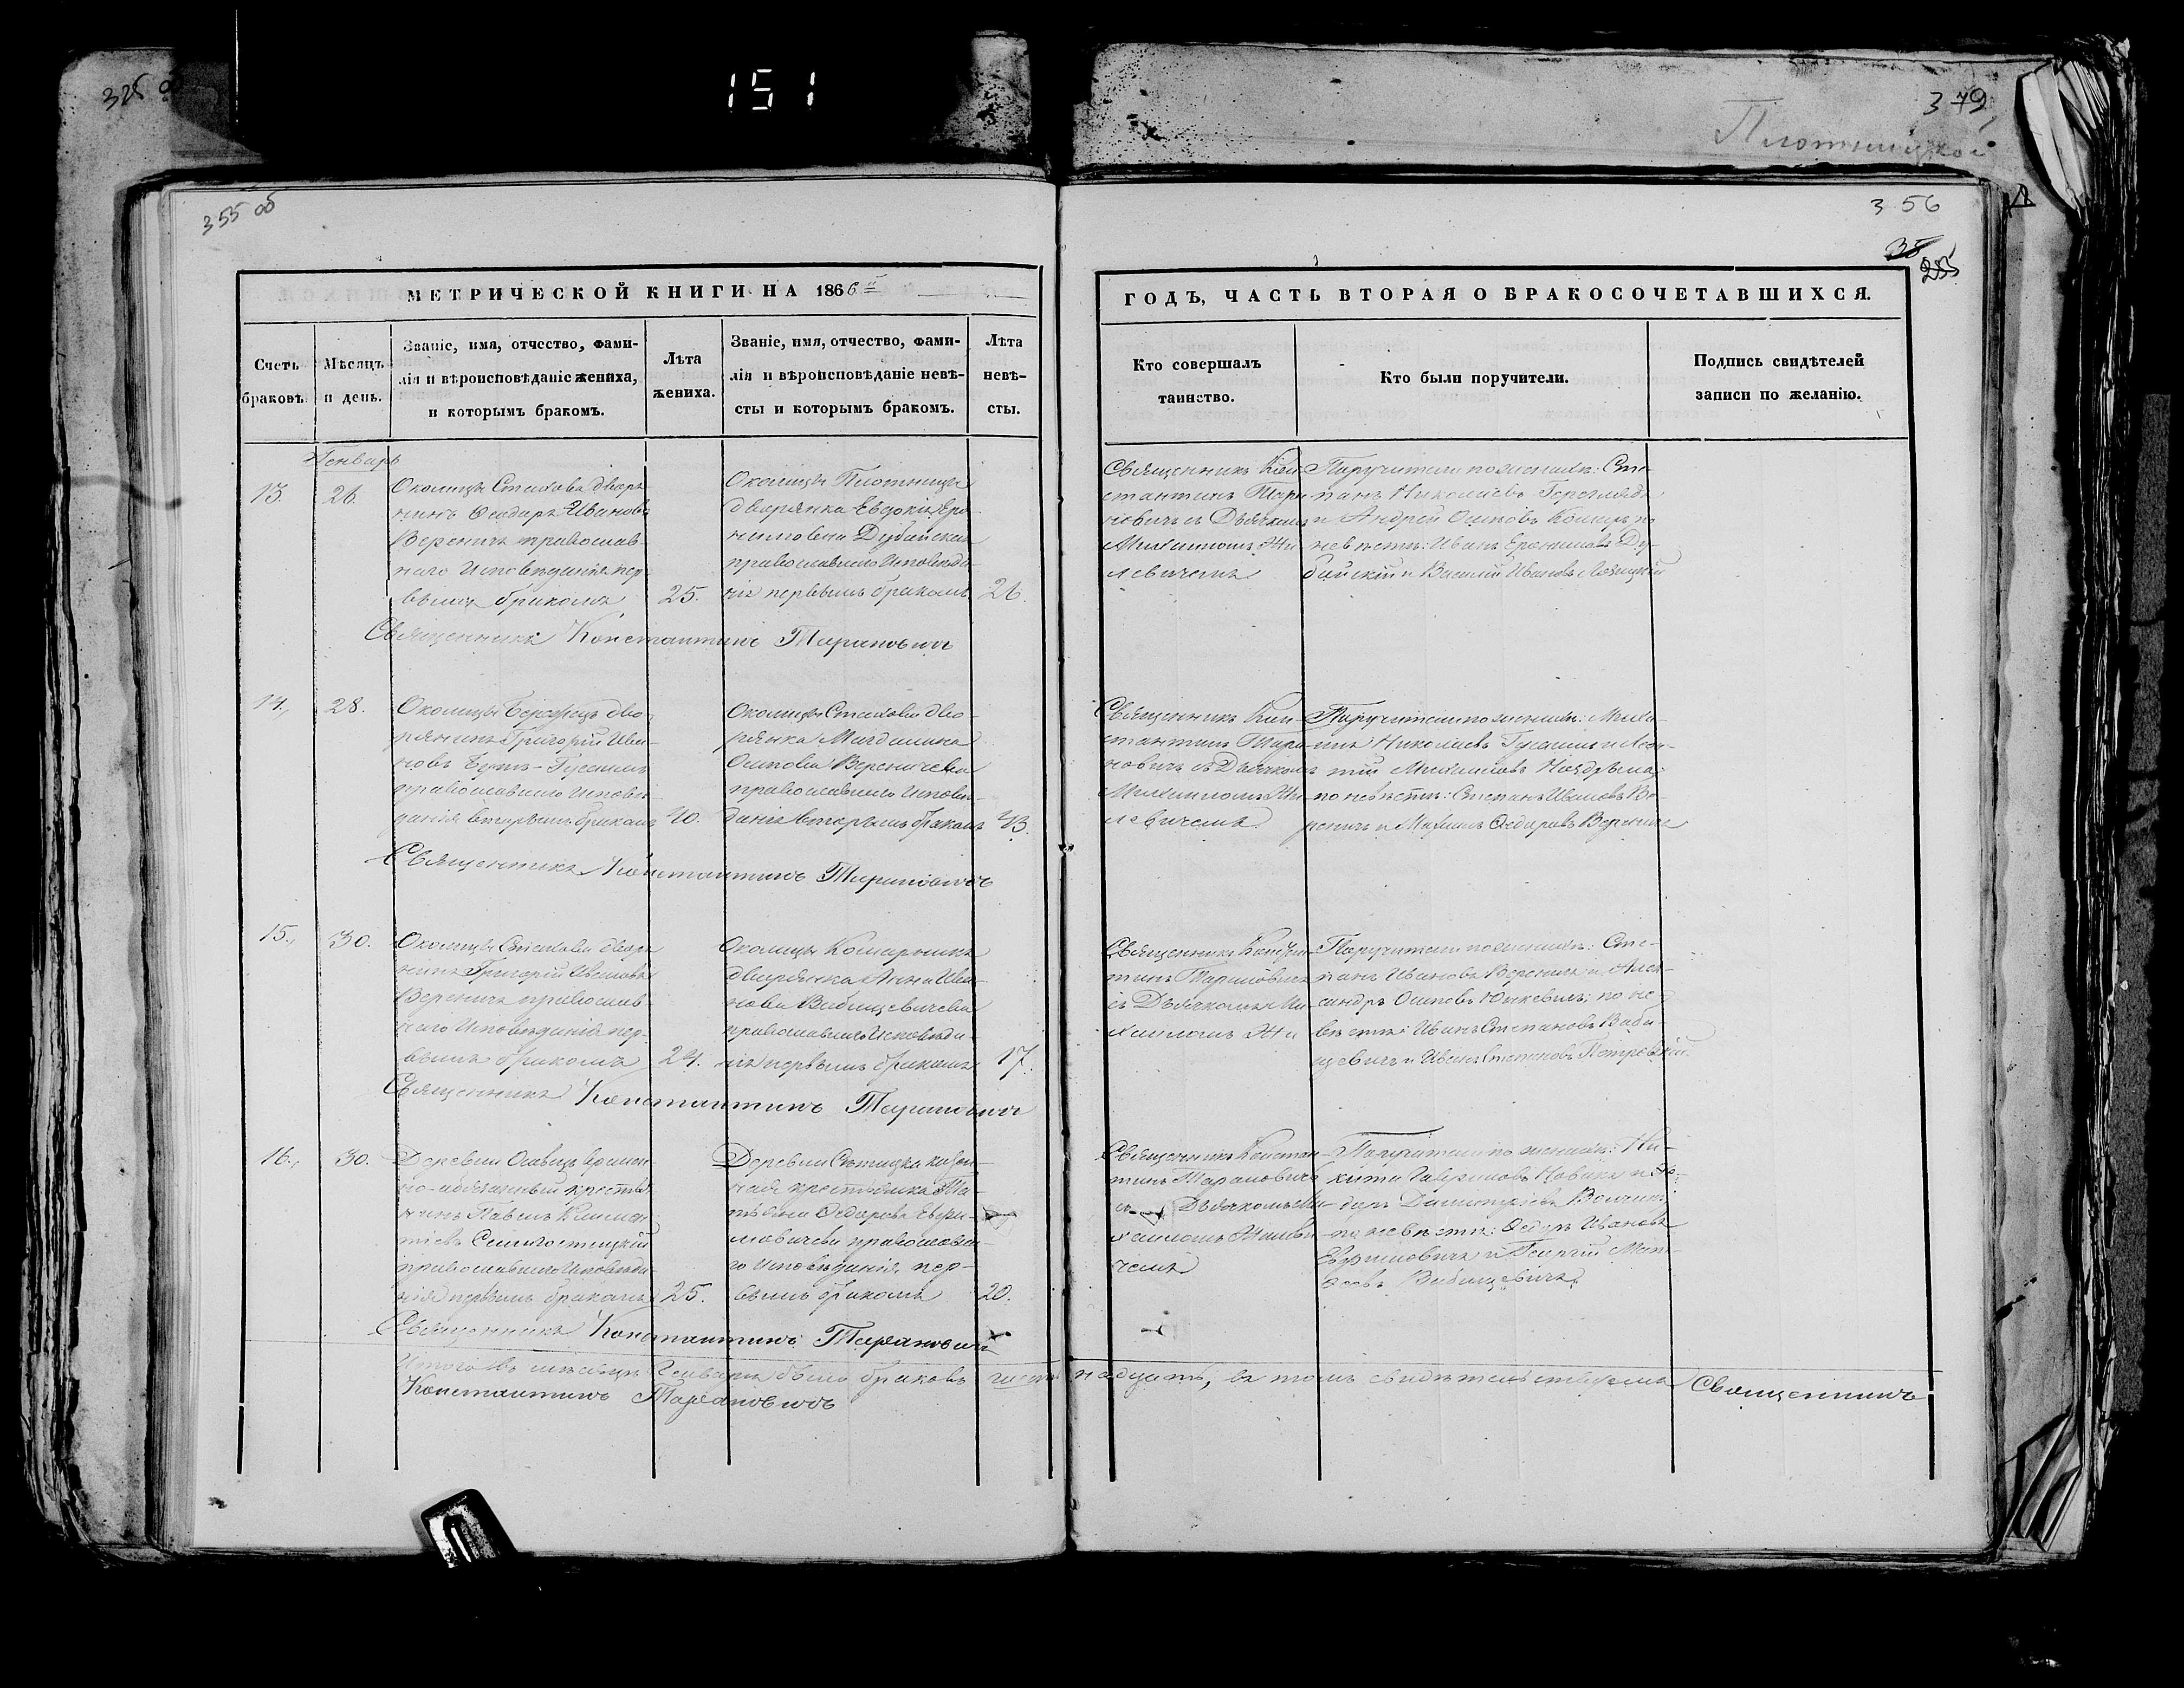 151
379
Плотницкой
355 об
356
МЕТРИЧЕСКОЙ КНИГИ НА 1866й
ГОДЪ, ЧАСТЬ ВТОРАЯ О БРАКОСОЧЕТАВШИХСЯ.
Счетъ браковъ.
Мѣсяцъ и день.
Званіе, имя, отчество, фами-
лія и вѣроисповѣданіе жениха,
и которымъ бракомъ.
Лѣта жениха.
Званіе, имя, отчество, фами-
лія и вѣроисповѣданіе невѣ-
сты и которымъ бракомъ.
Лѣта невѣ-
сты.
Кто совершалъ
таинство.
Кто были поручители.
Подпись свидѣтелей
записи по желанію.
Генварь
13
26
Околицы Стахова дворя
нинъ Ѳеодоръ Ивановъ
Вереничъ православ-
наго Исповѣданія пер
вымъ бракомъ
25.
Околицы Плотницы
дворянка Евдокия Еро
нимова Дубайская
православнаго Исповѣда
нія первымъ бракомъ
26.
Священникъ Кон-
стантинъ Тара
новичъ съ Дьячкомъ
Михаиломъ Жи
левичемъ
Поручители по женихѣ: Сте-
панъ Николаевъ
и Андрей Осиповъ по
невѣстѣ: Иванъ Еронимовъ Ду-
байскій и Василій Ивановъ
Священникъ Константинъ Тарановичъ
14.
28.
Околицы Бережецъ дво
рянинъ Григорій Ива-
новъ Бутъ-Гусаимъ
православнаго Исповѣ-
данія вторымъ бракомъ
40.
Околицы Стахова дво-
рянка Магдалина
Осипова Вереничева
православнаго Исповѣ-
данія вторымъ бракомъ
43.
Священникъ Кон-
стантинъ Тара
новичъ съ Дьячкомъ
Михаиломъ Жи
левичемъ
Поручители по женихѣ: Миха-
илъ Николаевъ Гусаимъ и Леон-
тій Михайловъ
по невѣстѣ: Степанъ Ивановъ Ве-
реничъ и Ѳедоровъ Вереничъ
Священникъ Константинъ Тарановичъ
15.
30.
Околицы Стахова дворя
нинъ Григорій Ивановъ
Вереничъ православ-
наго Исповѣданія пер-
вымъ бракомъ
24.
Околицы Комарникъ
дворянка Анна Ива-
нова Вабищевичева
православнаго Исповѣда-
нія первымъ бракомъ
17.
Священникъ Констан-
тинъ Тарановичъ
съ Дьячкомъ Ми-
хаиломъ Жи
Поручители по женихѣ: Сте-
панъ Ивановъ Вереничъ и Алек-
сандръ Осиповъ по не
вѣстѣ: Иванъ Степановъ Ваби-
щевичъ и Иванъ Степановъ Петровскій
Священникъ Константинъ Тарановичъ
16.
30.
Деревни Осовецъ времен
но-обязанный крестья
нинъ Павелъ Климен
тіевъ
православнаго Исповѣда
нія первымъ бракомъ
25.
Деревни Сѣтицка казен-
ная крестьянка Та-
тьяна Ѳедорова Ефи-
мовичева православна-
го Исповѣданія пер-
вымъ бракомъ
20.
Священникъ Констан-
тинъ Тарановичъ
съ Дьячкомъ Ми-
хаиломъ Жилеви
чемъ
Поручители по женихѣ: Ни-
кита Гавриловъ Новикъ и Ѳе-
доръ Димитріевъ
по невѣстѣ: Ѳедоръ Ивановъ
Ефимовичъ и Георгій Мат-
ѳеевъ Вабищевичъ
Священникъ Константинъ Тарановичъ
Итого въ мѣсяцѣ Генварѣ было браковъ шестнадцать, въ томъ свидѣтельствуемъ Священникъ
Константинъ Тарановичъ